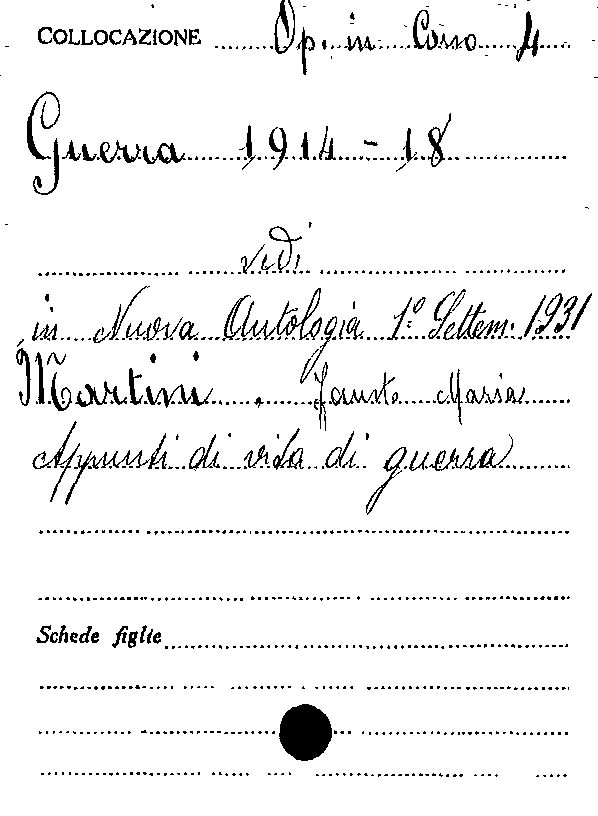 COLLOCAZIONE Op. in Corso 4
Guerra 1914-18
vedi
in Nuova Antologia 1° Settem. 1931
Martini. Fausto Maria
Appunti di vita di guerra
Schede figlie